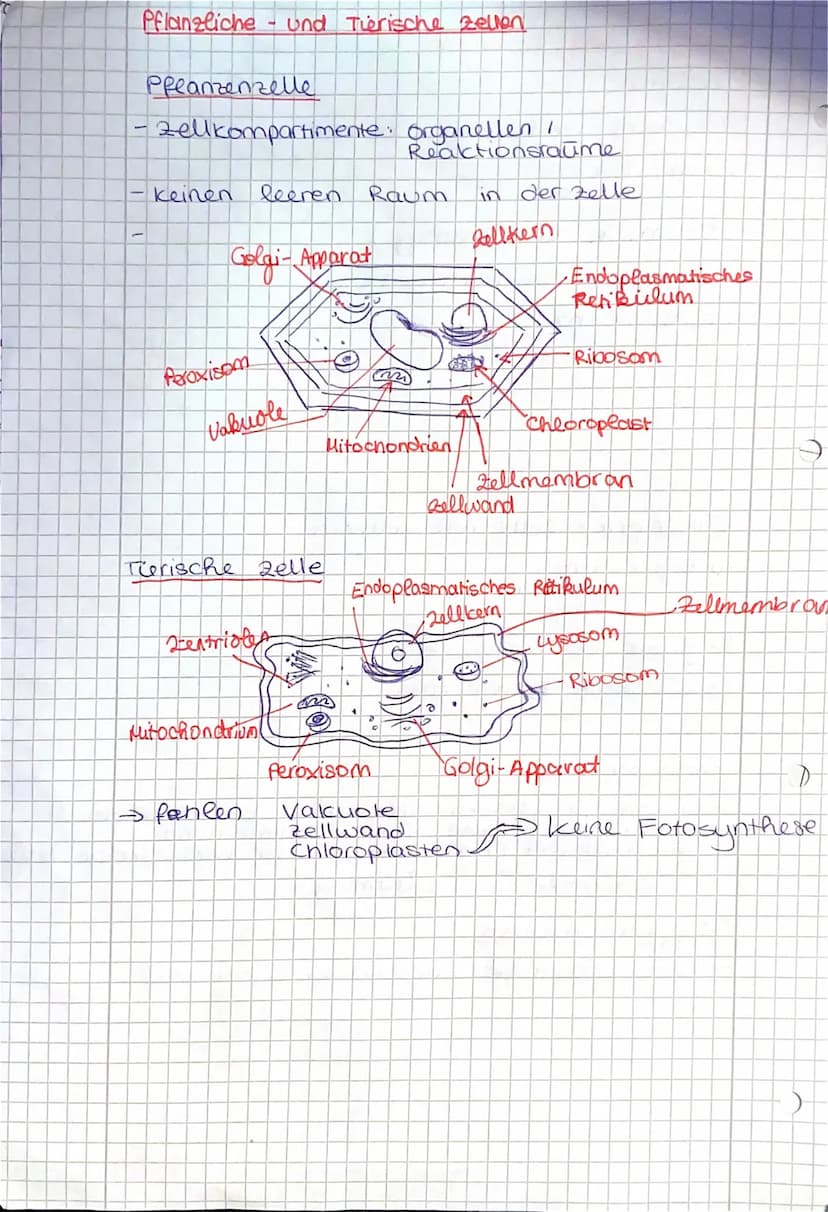 Pflanzliche - und Tierische Zellen
Pflanzenzelle
- Zellkompartimente: Organellen /
Reaktionsräume
- keinen leeren Raum in der Zelle
-
Zellkern
Golgi-Apparat
Endoplasmatisches
Retikulum
Ribosom
Peroxisom
Vakuole
Chloroplast
Mitochondrien
Zellmembran
Zellwand
Tierische Zelle
Endoplasmatisches Retikulum
Zellkern
Zellmembran
Zentriolen
Lysosom
Ribosom
Mitochondrium
Peroxisom
Golgi-Apparat
→ fehlen Vakuole
Zellwand
Chloroplasten ⇒ keine Fotosynthese